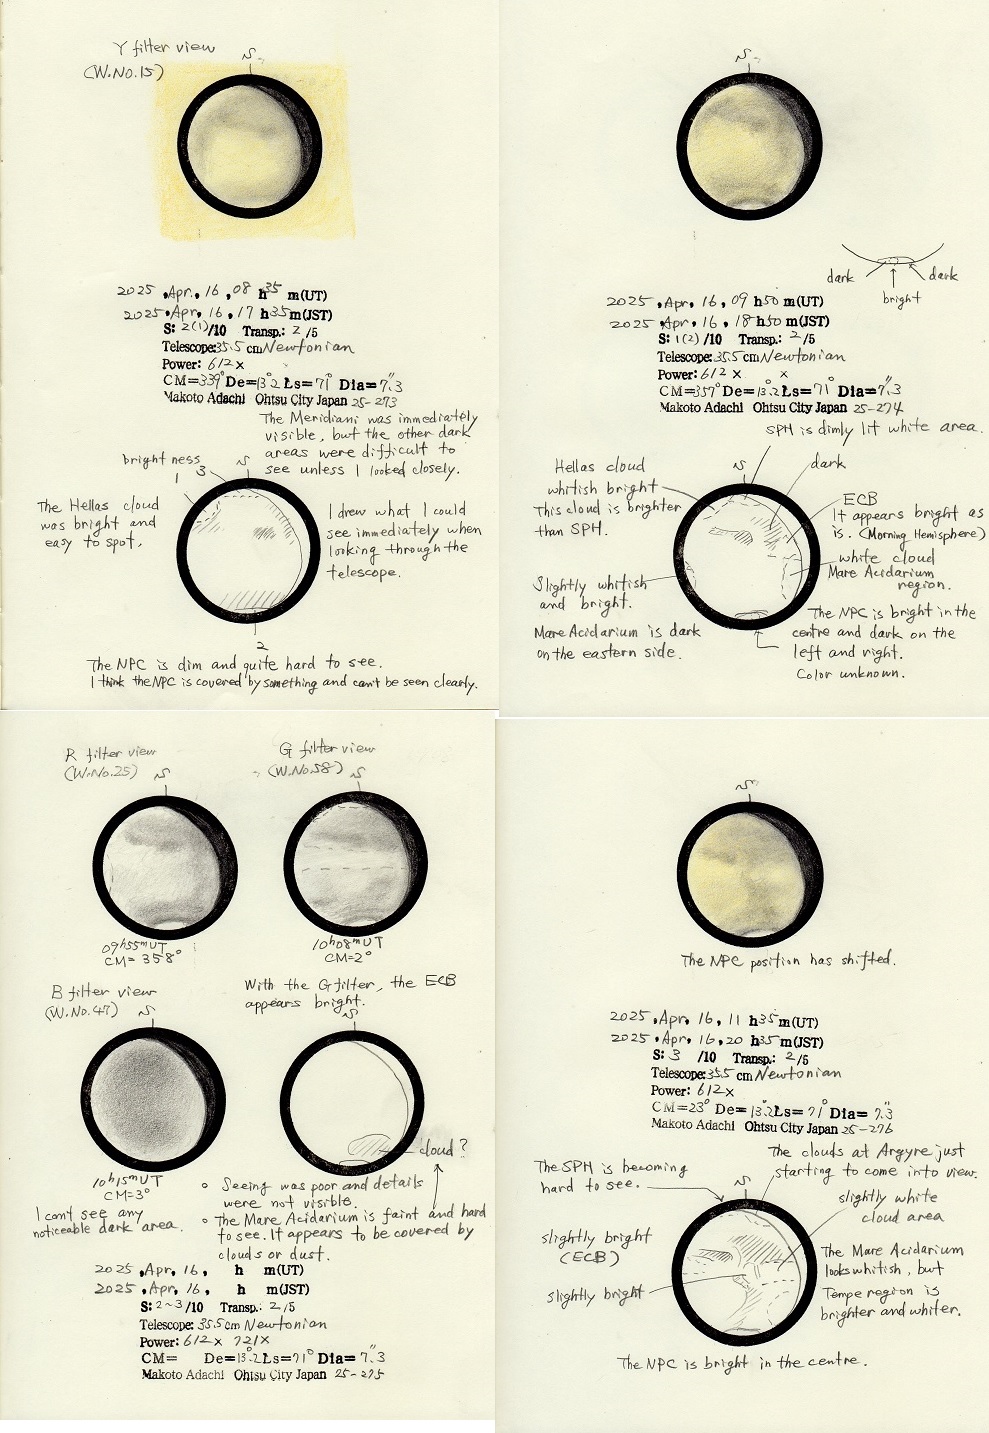 Y filter view
(W.No.15)
S
2025 , Apr. 16 , 08 h 35 m(UT)
2025 , Apr. 16 , 17 h 35 m(JST)
S: 2(1)/10 Transp.: 2 /5
Telescope: 35.5 cm Newtonian
Power: 612 x
CM=339° De=13.°2 Ls=71° Dia=7."3
Makoto Adachi Ohtsu City Japan 25-273
The Meridiani was immediately
visible, but the other dark
areas were difficult to
see unless I looked closely.
brightness
3
1
S
The Hellas cloud
was bright and
easy to spot.
I drew what I could
see immediately when
looking through the
telescope.
2
The NPC is dim and quite hard to see.
I think the NPC is covered by something and can't be seen clearly.
S
dark
dark
bright
2025 , Apr. 16 , 09 h 50 m(UT)
2025 , Apr. 16 , 18 h 50 m(JST)
S: 1(2) /10 Transp.: 2 /5
Telescope: 35.5 cm Newtonian
Power: 612 x x
CM=357° De=13.°2 Ls=71° Dia=7."3
Makoto Adachi Ohtsu City Japan 25-274
SPH is dimly lit white area.
S
dark
Hellas cloud
whitish bright
This cloud is brighter
than SPH.
ECB
It appears bright as
is. (Morning Hemisphere)
white cloud
Mare Acidarium
region.
Slightly whitish
and bright.
Mare Acidarium is dark
on the eastern side.
The NPC is bright in the
centre and dark on the
left and right.
Color unknown.
R filter view
(W.No.25)
S
G filter view
(W.No.58)
S
09h55mUT
CM=358°
10h08mUT
CM=2°
B filter view
(W.No.47)
S
With the G filter, the ECB
appears bright.
S
cloud?
10h15mUT
CM=3°
I can't see any
noticeable dark area.
○ Seeing was poor and details
were not visible.
○ The Mare Acidarium is faint and hard
to see. It appears to be covered by
clouds or dust.
2025 , Apr. 16 , h m(UT)
2025 , Apr. 16 , h m(JST)
S: 2~3/10 Transp.: 2 /5
Telescope: 35.5 cm Newtonian
Power: 612x 721x
CM= De=13.°2 Ls=71° Dia=7."3
Makoto Adachi Ohtsu City Japan 25-275
S
The NPC position has shifted.
2025 , Apr. 16 , 11 h 35 m(UT)
2025 , Apr. 16 , 20 h 35 m(JST)
S: 3 /10 Transp.: 2 /5
Telescope: 35.5 cm Newtonian
Power: 612x
CM=23° De=13.°2 Ls=71° Dia=7."3
Makoto Adachi Ohtsu City Japan 25-276
The clouds at Argyre just
starting to come into view.
The SPH is becoming
hard to see.
S
slightly white
cloud area
slightly bright
(ECB)
slightly bright
The Mare Acidarium
looks whitish, but
Tempe region is
brighter and whiter.
The NPC is bright in the centre.